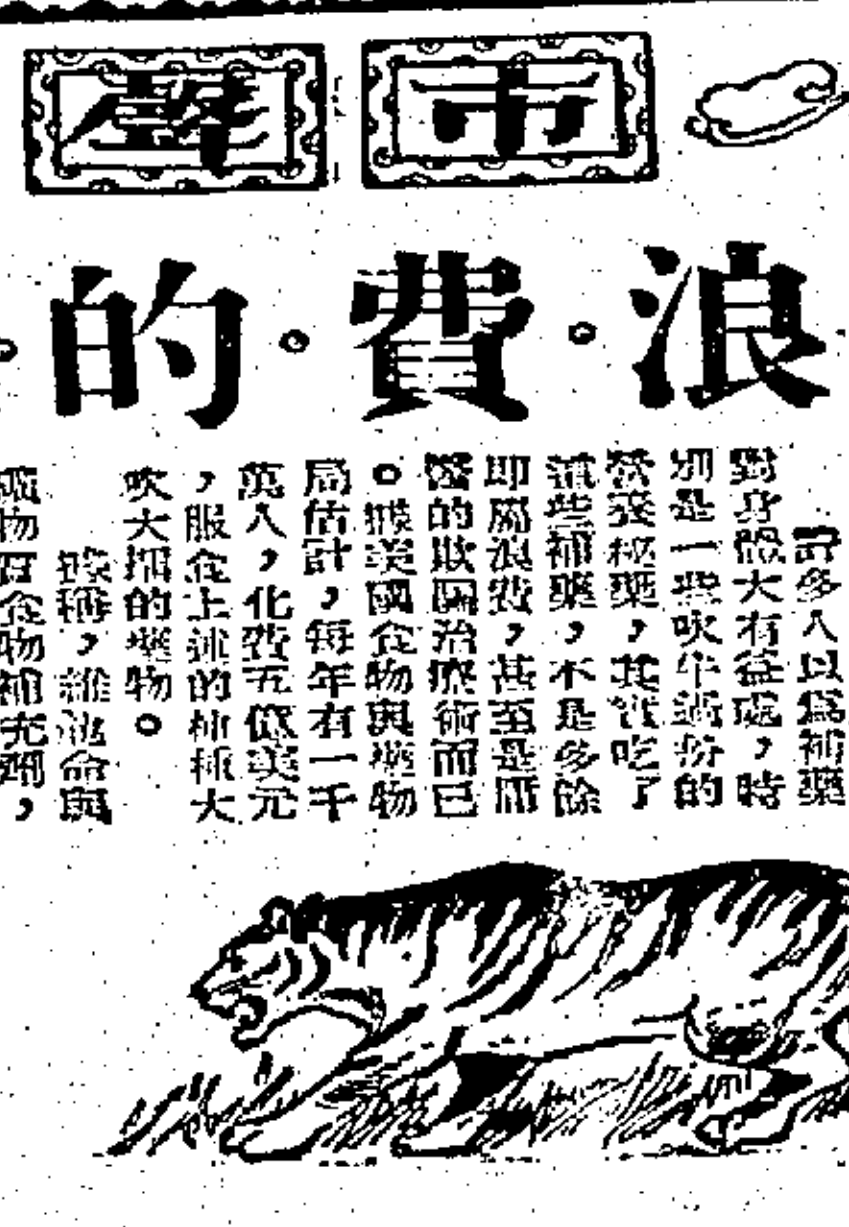 市聲
浪·費·的·
許多人以爲補藥
對身體大有益處,時
別是一些吹牛過份的
營養秘藥,其實吃了
這些補藥,不是多餘
即屬浪費,甚至是騙
醫的欺騙治療術而已
。據美國食物與藥物
局估計,每年有一千
萬人,化費五億美元
,服食上述的種種大
吹大擂的藥物。
據稱,維他命與
礦物質食物補充劑,